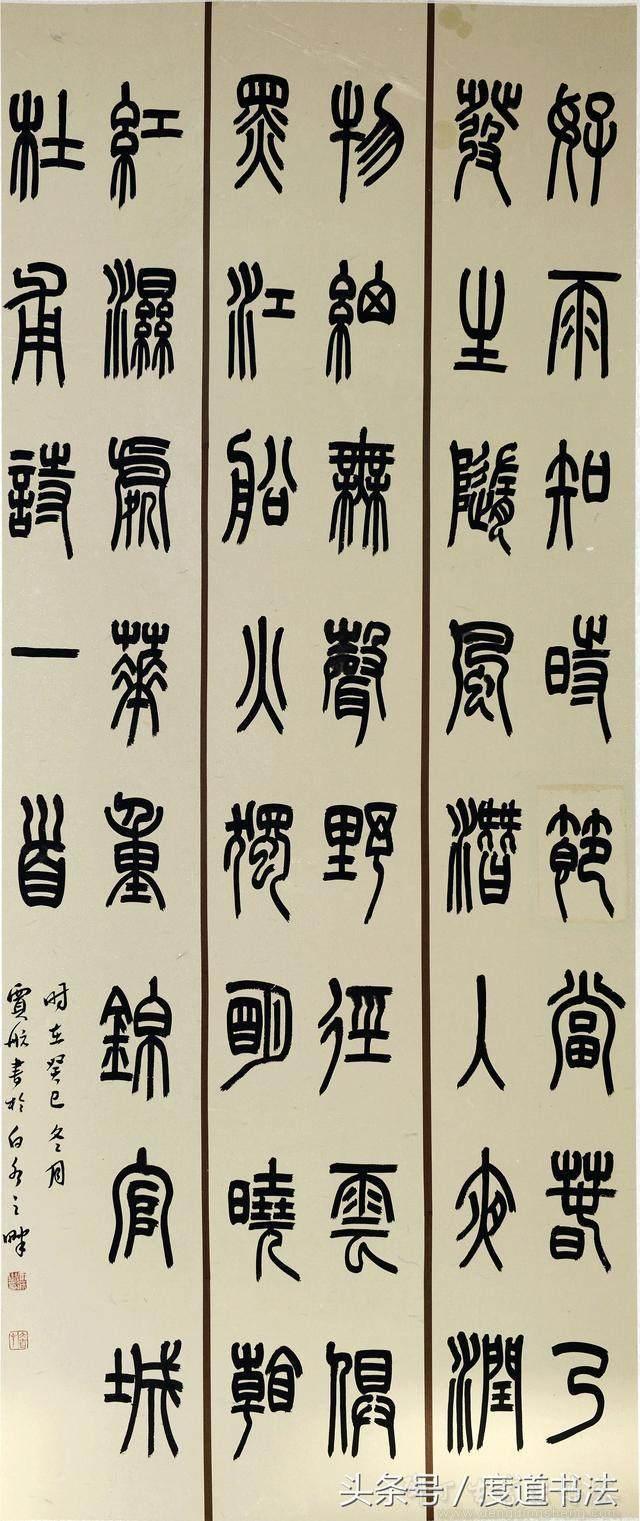 好雨知時節當春乃
發生隨風潛入夜潤
物細無聲野徑雲俱
黑江船火獨明曉看
紅濕處華重錦官城
杜甫詩一首
时在癸巳冬月
賈航書於白水之畔
头条号 / 度道书法